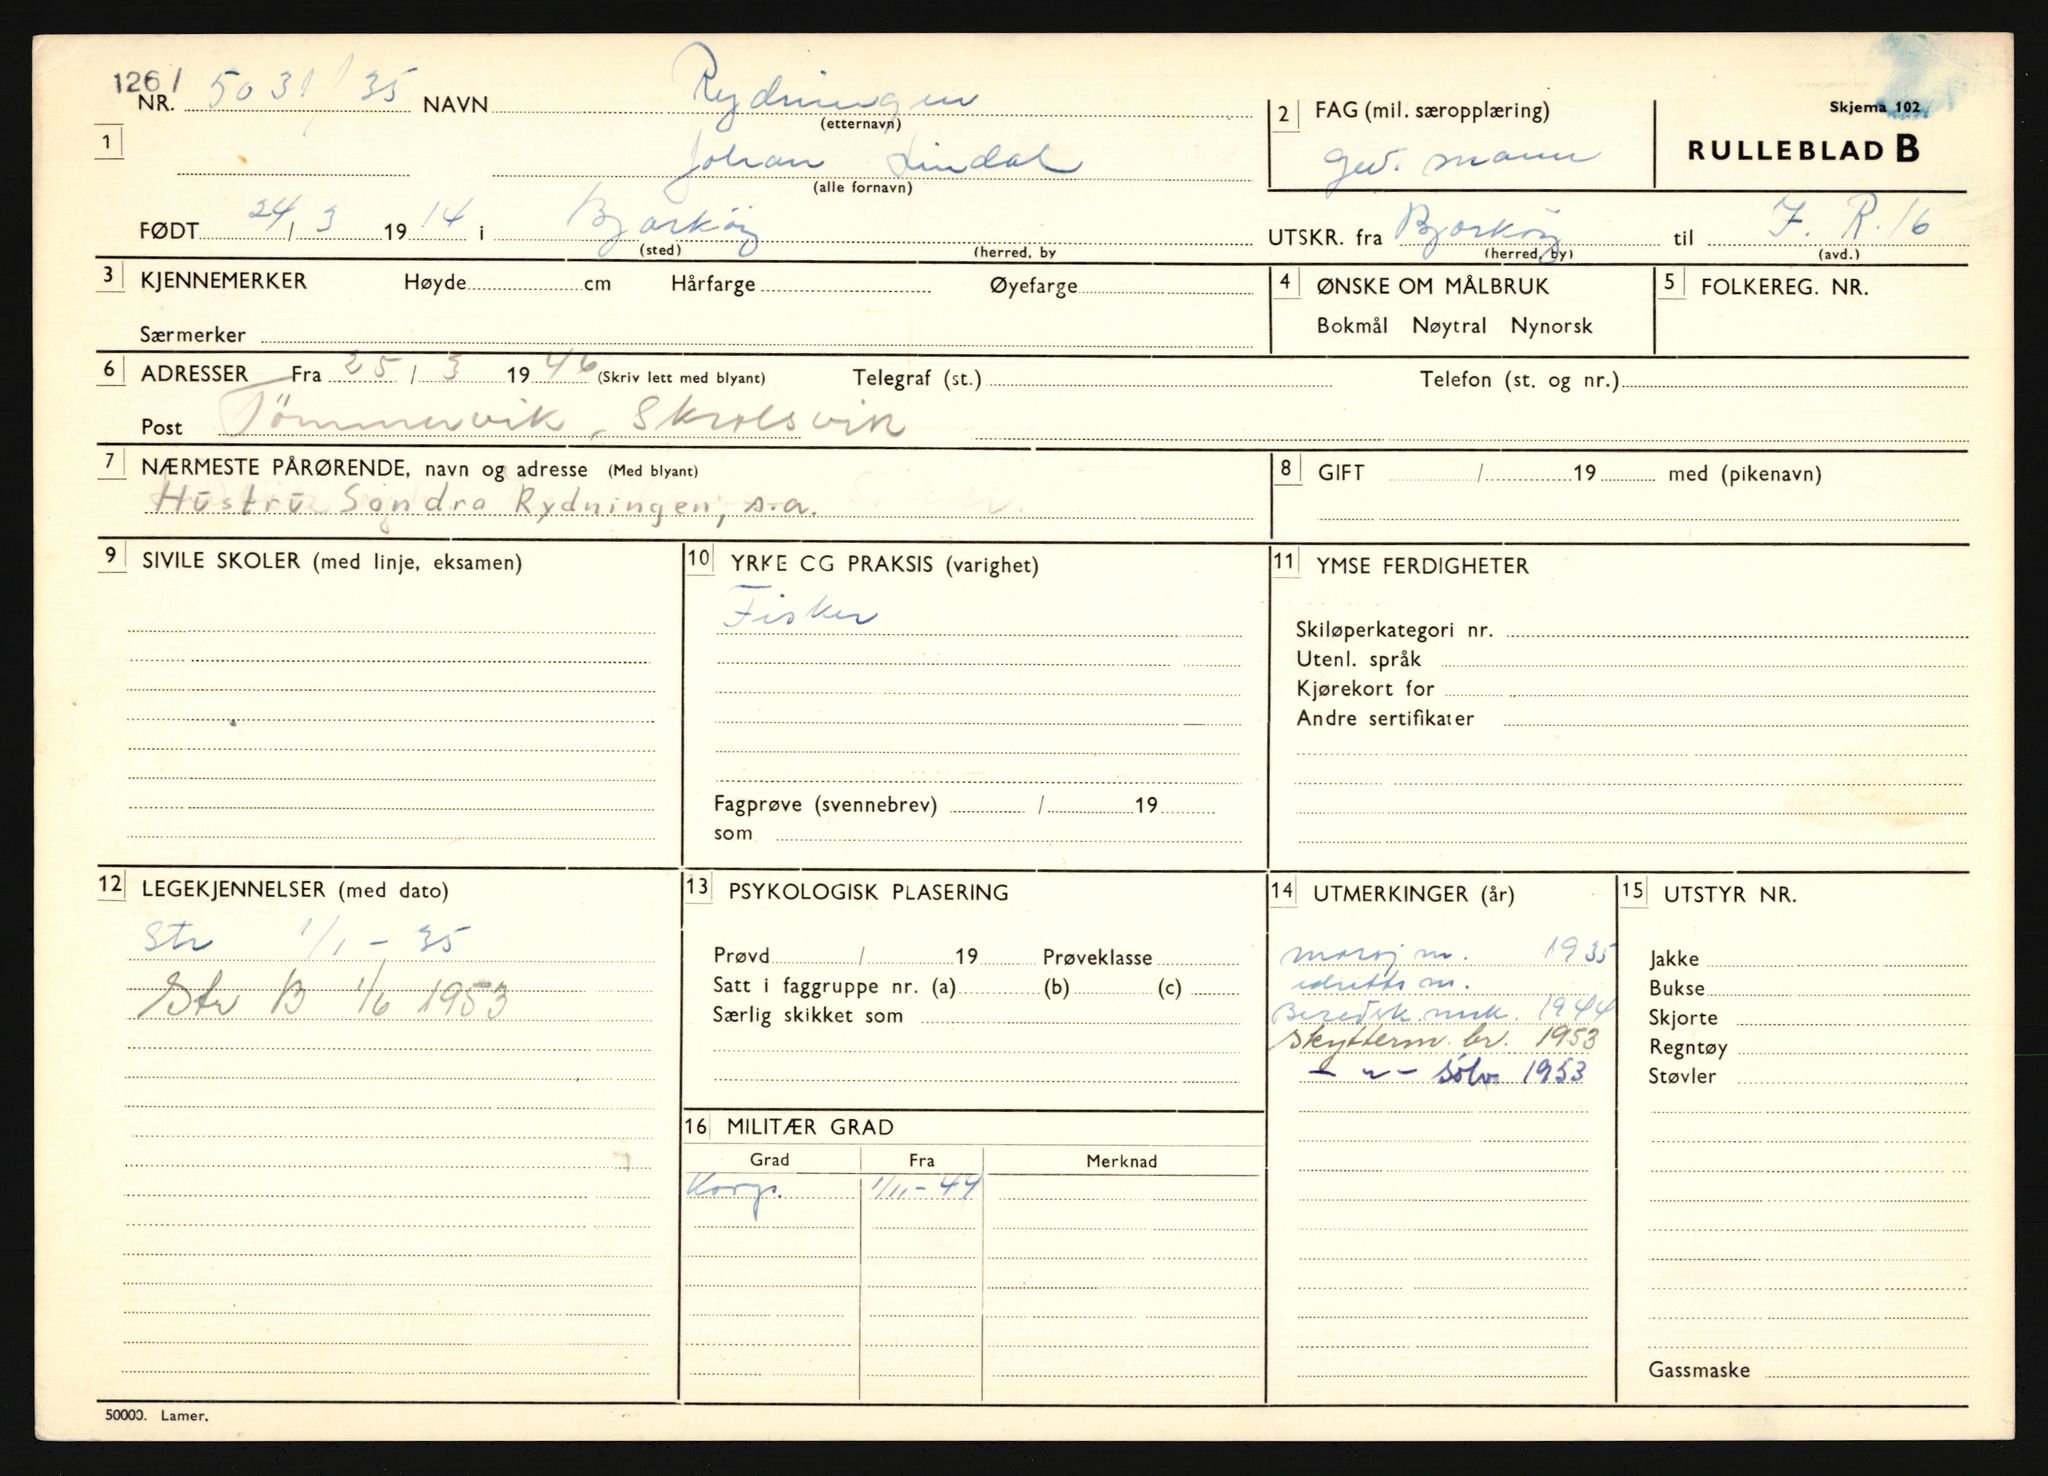 126/
NR. 5031/35 NAVN Rydningen
(etternavn)
2 FAG (mil. særopplæring)
Skjema 102
RULLEBLAD B
1
Johan Lindal
(alle fornavn)
gev. mann
FØDT 24/3 1914 i Bjarkøy
(sted) (herred, by
UTSKR. fra Bjarkøy til I. R. 16
(herred, by) (avd.)
3 KJENNEMERKER Høyde cm Hårfarge Øyefarge
Særmerker
4 ØNSKE OM MÅLBRUK
Bokmål Nøytral Nynorsk
5 FOLKEREG. NR.
6 ADRESSER Fra 25/3 1946 (Skriv lett med blyant) Telegraf (st.) Telefon (st. og nr.)
Post Tömmervik, Skrolsvik
7 NÆRMESTE PÅRØRENDE, navn og adresse (Med blyant)
Hustru Sandra Rydningen, s.a.
8 GIFT / 19 med (pikenavn)
9 SIVILE SKOLER (med linje, eksamen)
10 YRKE CG PRAKSIS (varighet)
Fisker
Fagprøve (svennebrev) / 19
som
11 YMSE FERDIGHETER
Skiløperkategori nr.
Utenl. språk
Kjørekort for
Andre sertifikater
12 LEGEKJENNELSER (med dato)
Str 1/1 - 35
Str B 1/6 1953
13 PSYKOLOGISK PLASERING
Prøvd / 19 Prøveklasse
Satt i faggruppe nr. (a) (b) (c)
Særlig skikket som
14 UTMERKINGER (år)
marsj m. 1935
idretts m.
Beredsk. mrk. 1944
Skytterm. br. 1953
- " - Sölv 1953
15 UTSTYR NR.
Jakke
Bukse
Skjorte
Regntøy
Støvler
Gassmaske
16 MILITÆR GRAD
Grad Fra Merknad
Korp. 1/11-44
50000. Lamer.